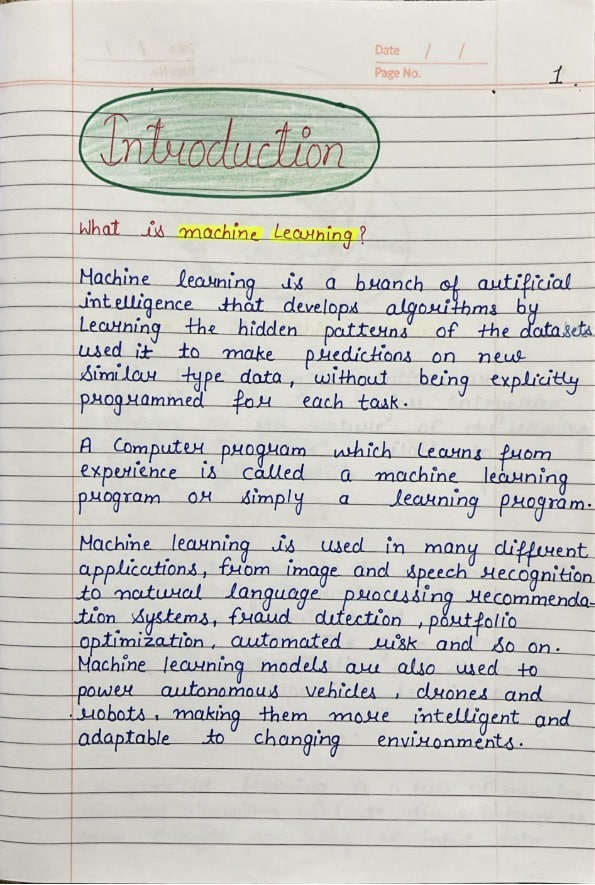 Date / /
Page No.
1.
Introduction
What is machine Learning?
Machine learning is a branch of artificial
intelligence that develops algorithms by
Learning the hidden patterns of the datasets
used it to make predictions on new
similar type data, without being explicitly
programmed for each task.
A Computer program which Learns from
experience is called a machine learning
program or simply a learning program.
Machine learning is used in many different
applications, from image and speech recognition
to natural language processing recommenda-
tion systems, fraud detection, portfolio
optimization, automated risk and so on.
Machine learning models are also used to
power autonomous vehicles, drones and
robots, making them more intelligent and
adaptable to changing environments.